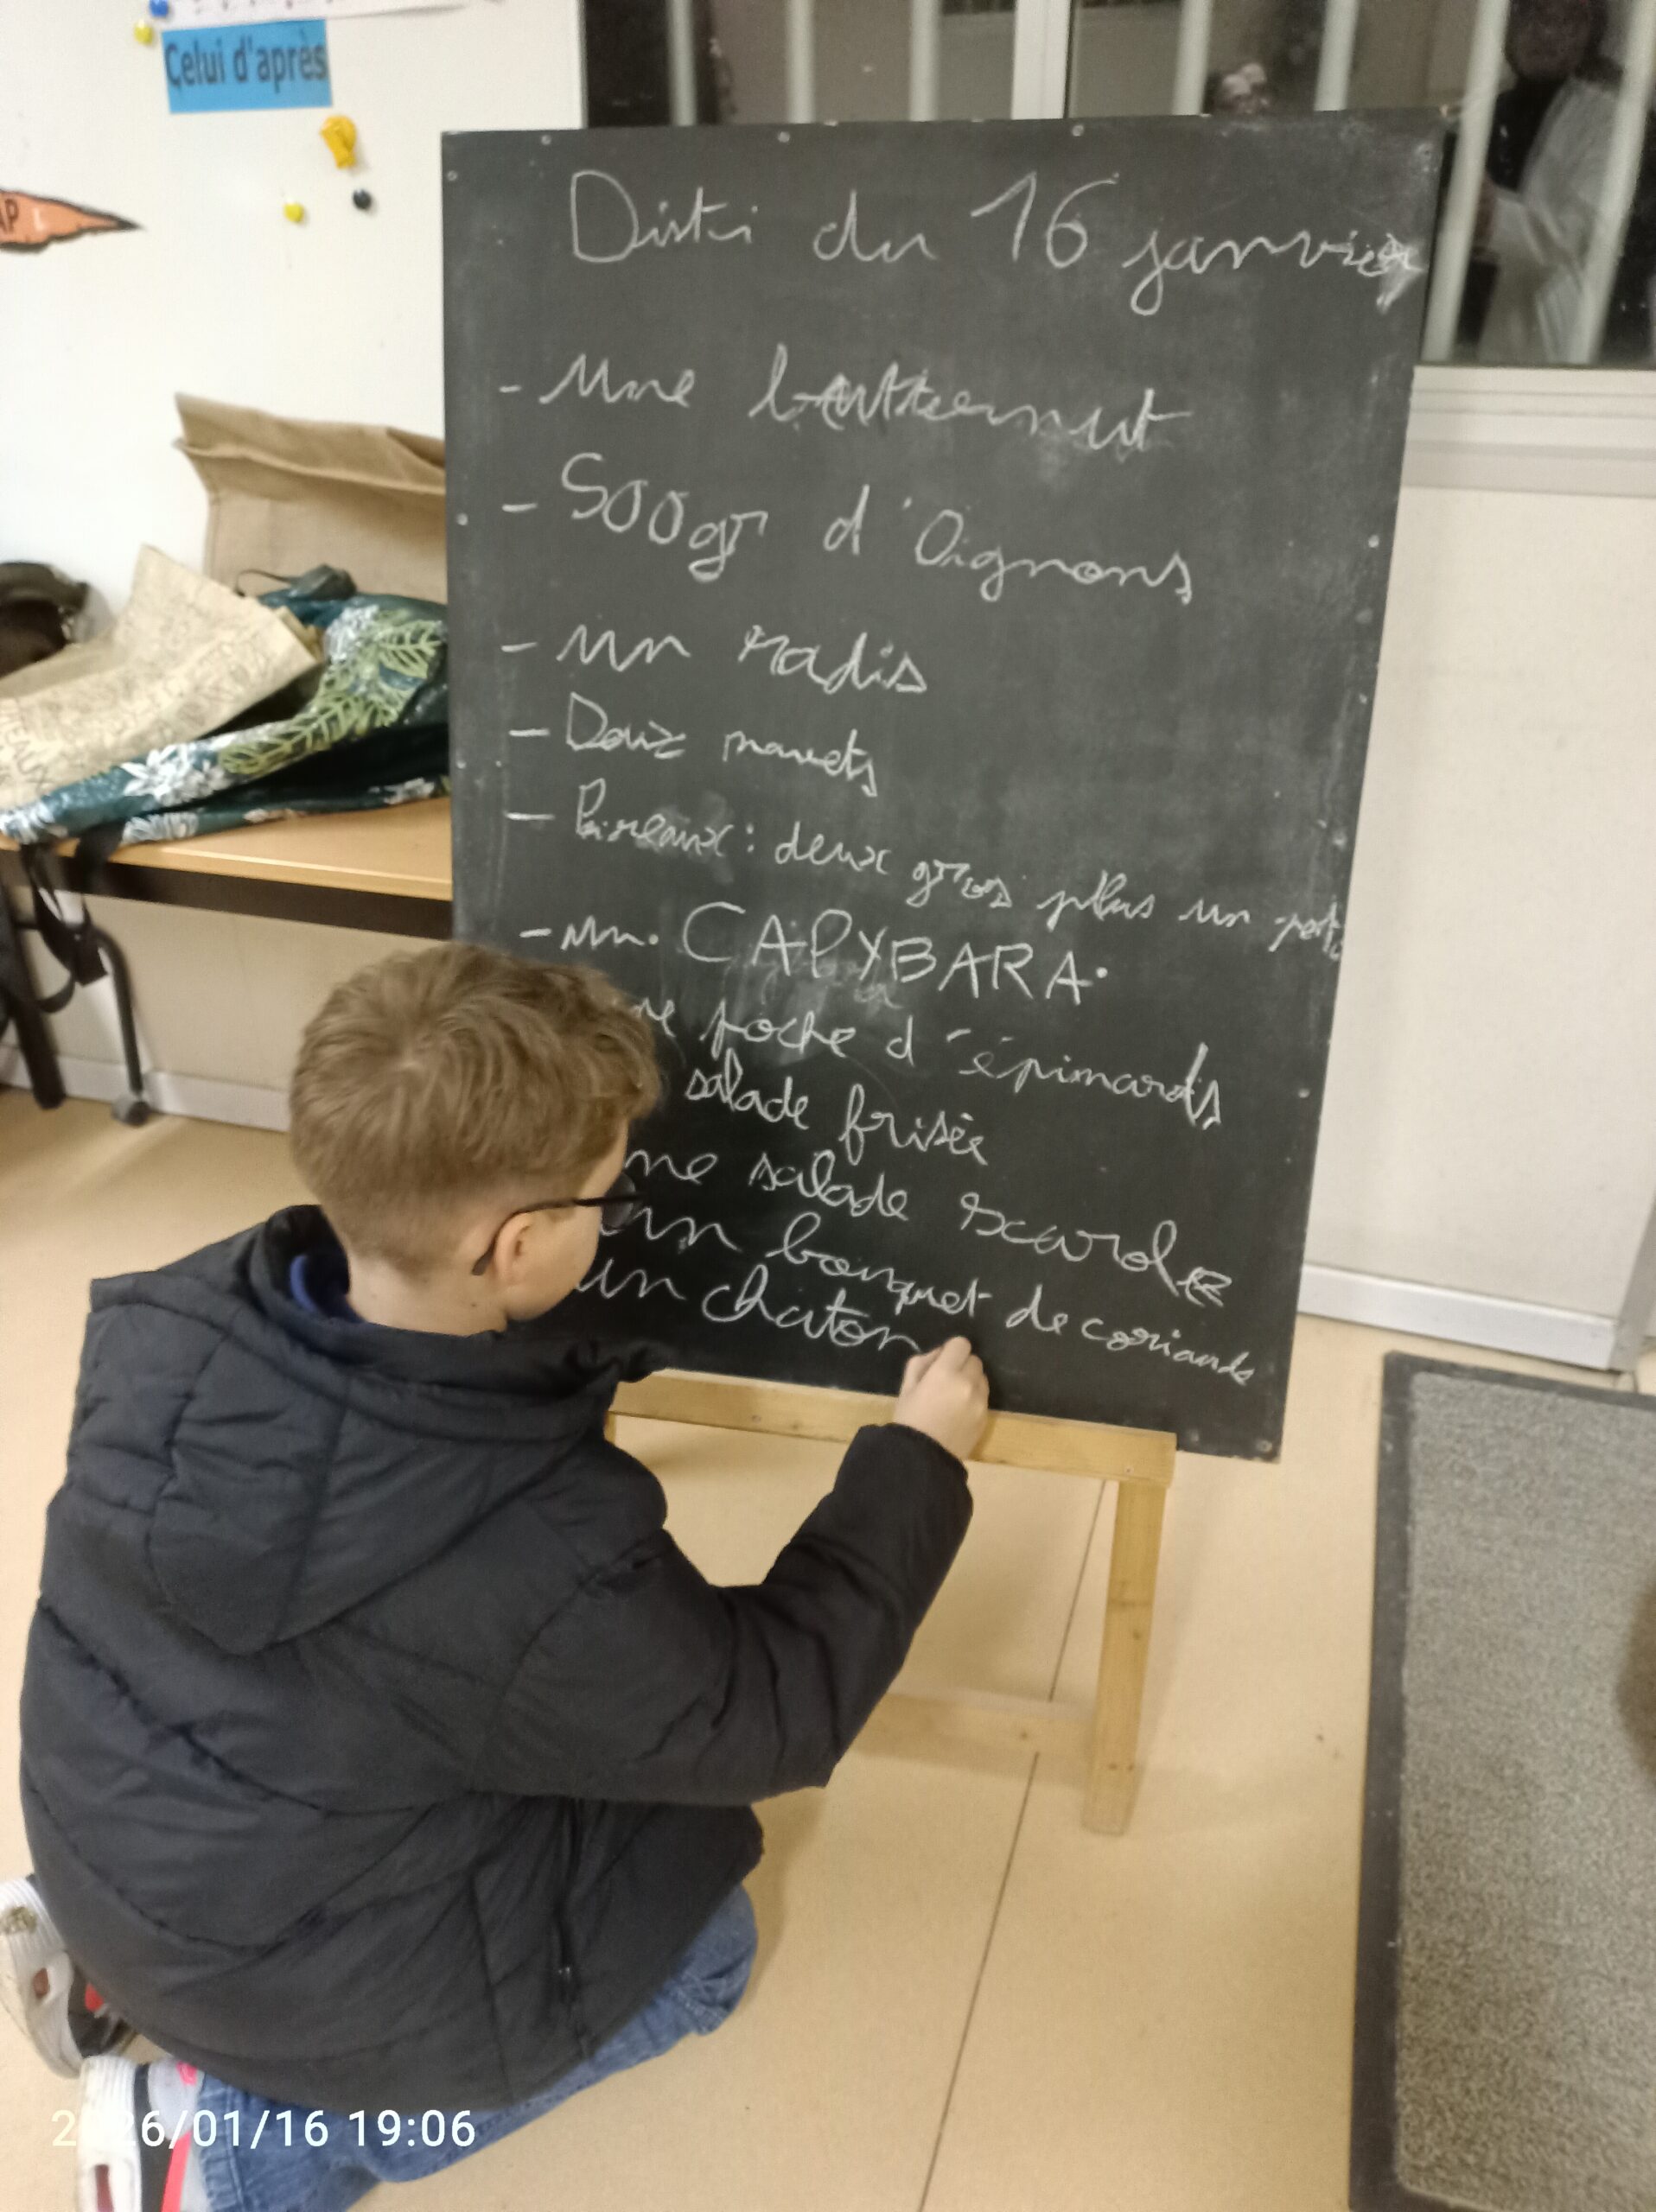 Celui d'après
AP
Distri du 16 janvier
- une butternut
- 500gr d'Oignons
- un radis
- Douz navets
- Poireaux : deux gros plus un petit
- un. CAPYBARA.
ne poche d'épinards
salade frisée
ne salade scarole
un bouquet de coriande
un chaton
2026/01/16 19:06